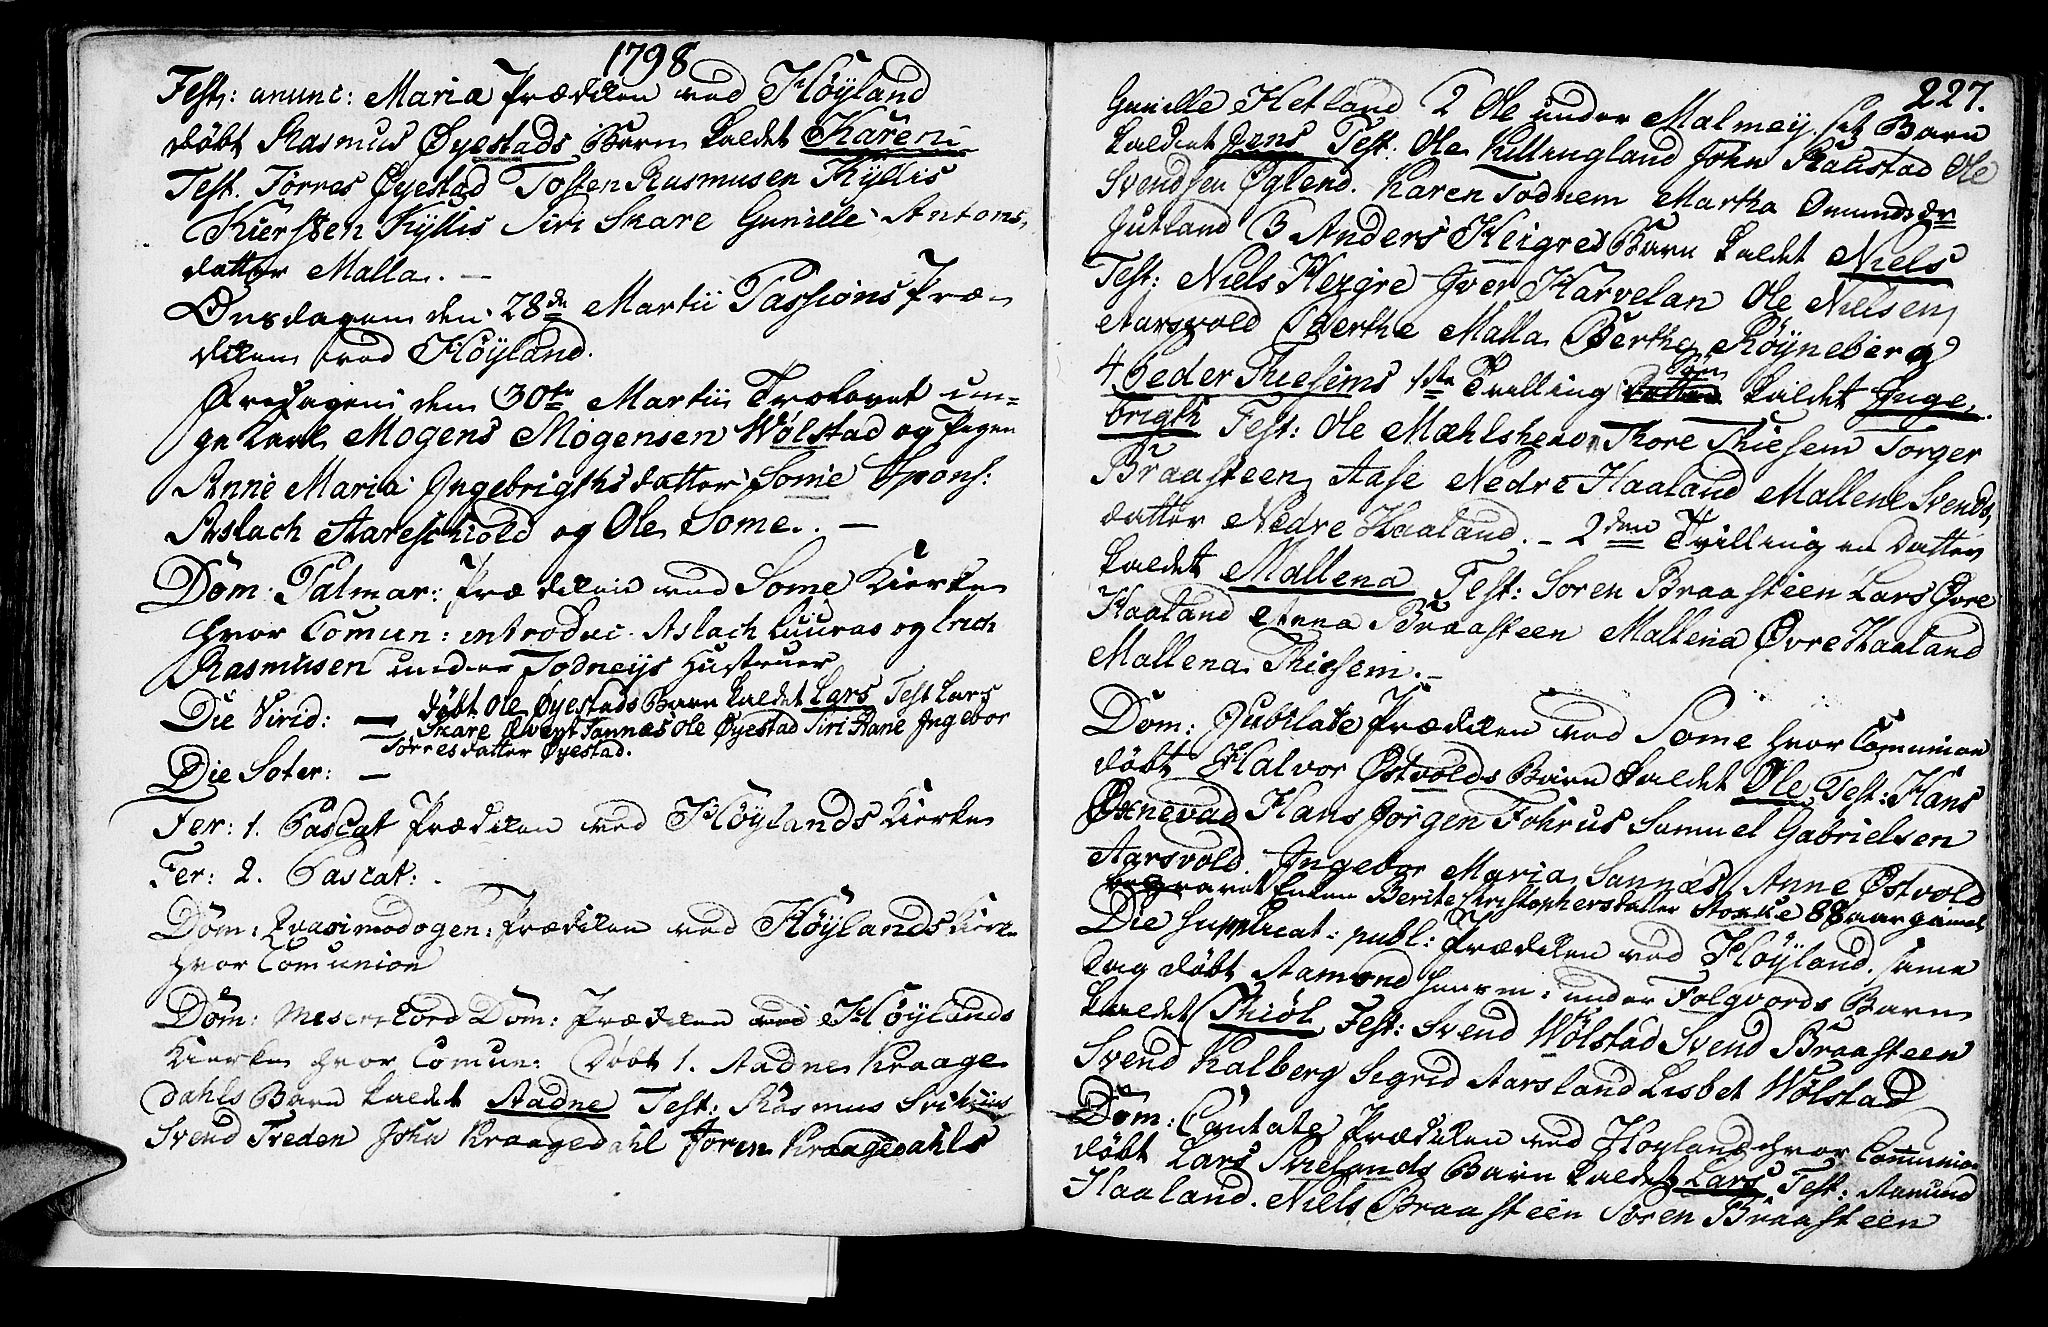 1798
Fest: anunc: Maria Prædiken ved Höyland
döbt Rasmus Øyestads Barn kaldet Karen
Test. Törres Øyestad Tosten Rasmusen Kyllis
Kiersten Kyllis Siri Skare Gunille Antons
datter Malla. —
Onsdagen den 28de Martii Passions Præ-
diken ved Höyland.
Fredagen den 30te Martii Trolovet un-
ge Karl Mogens Mogensen Wölstad og Pigen
Anne Maria Ingebrigthsdatter Some Spons:
Aslach Aareskiold og Ole Some. —
Dom: Palmar: Prædiken ved Some Kierke
hvor Comun: introduc. Aslach Luuras og Erich
Rasmusen under Todneijs Hustruer
Die Virid: — döbt Ole Øyestads Barn kaldet Lars Test Lars
Skare Ølvert Tannes Ole Øyestad Siri Hane Ingebor
Törresdatter Øyestad.
Die Soter: —
Fer: 1. Pascat Prædiken ved Höylands Kierke
Fer: 2. Pascat: .
Dom: Qvasimodogen: Prædiken ved Höylands Kirke
hvor Comunion
Dom: Meserecord Dom: Prædiken ved Höylands
Kierke hvor Comun: Döbt 1. Aadne Kraage
dahls Barn kaldet Aadne Test: Rasmus
Svend Treden John Kraagedahl Joren Kraagedahls
227.
Gunille Hetland 2 Ole under Malmey. Barn
kaldet Jens Test. Ole Kullingland John Skadstad Ole
Svendsen Øglend. Karen Todnem Martha Omundsdr
Jutland 3 Anders Heigres Barn kaldet Niels
Test: Niels Hezgre Iver Harvelan Ole Nielsen
Aarsvold Berthe Malla Berthe Röyneberg
4 Peder Thiesems 1ste Tvilling Sön kaldet Inge-
brigth Test: Ole Mæhlsheio Thore Thiesem Torger
Braasteen Aase Nedre Haaland Mallene Svends
datter Nedre Haaland. – 2den Tvilling en Datter
kaldet Mallena Test: Soren Braasteen Lars Øvre
Haaland Anna Braasteen Mallena Øvre Haaland
Mallena Thiesem. –
Dom: Jubilate Prædiken ved Some hvor Comunion
döbt Halvor Østvolds Barn kaldet Ole Test: Hans
Øxnevad Hans Jörgen Fohrus Samuel Gabrielsen
Aarsvold. Ingebor Maria Sannæs Anne Østvold
begravet Enken Berite Christophersdatter Stokke 88 aar gamel
Die Supplicat: publ: Prædiken ved Höyland. same
Dag döbt Aamond under Folgvords Barn
kaldet Thiöl Test: Svend Wölstad Svend Braasteen
Svend Kalberg Sigrid Aarsland Lisbet Wölstad
Dom: Cantate Prædiken ved Höyland hvor Communion
döbt Lars Svielands Barn kaldet Lars Test: Aamund
Haaland. Niels Braasteen Sören Braasteen